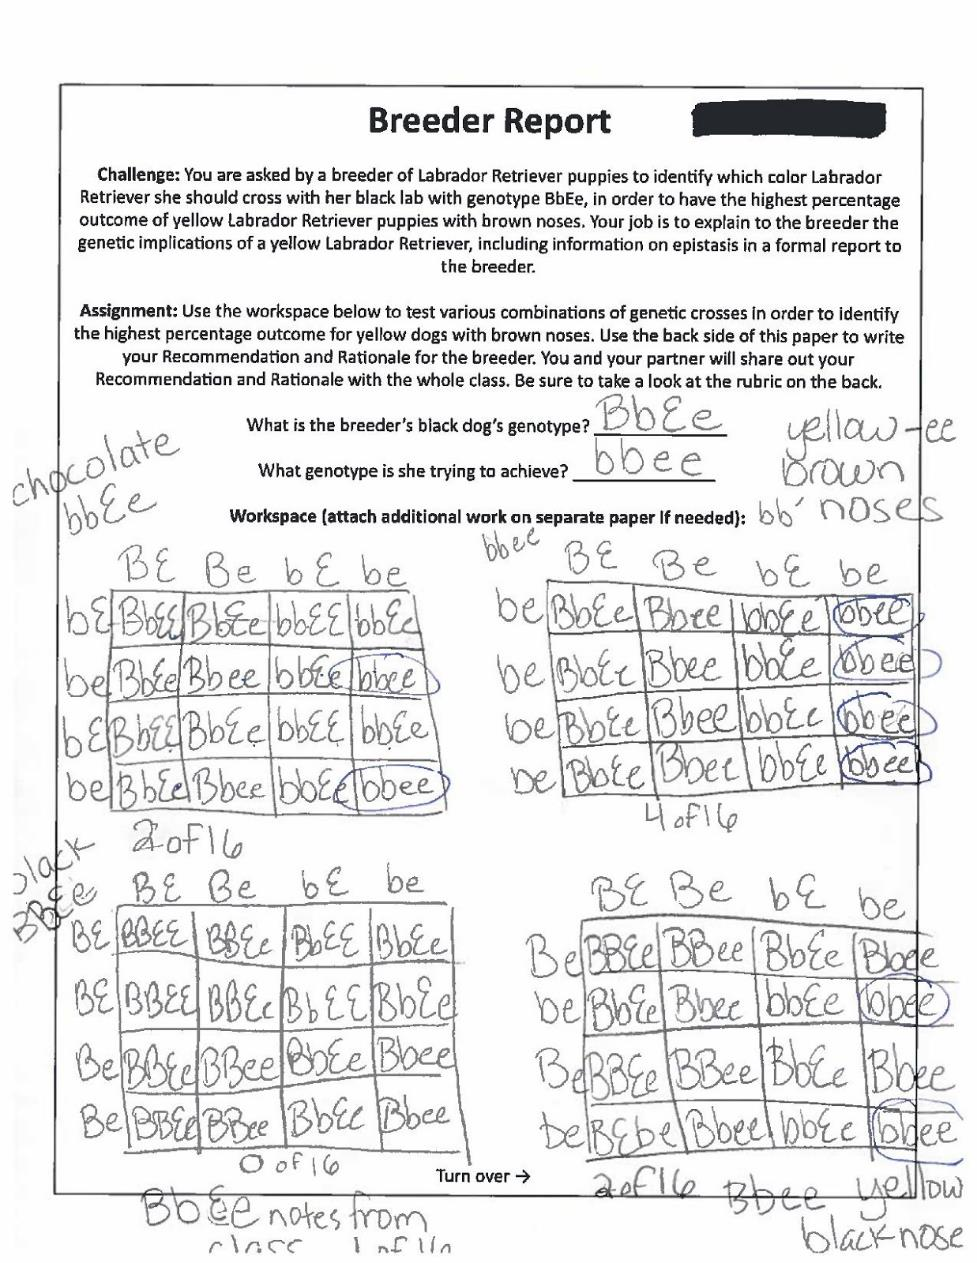 Breeder Report
Challenge: You are asked by a breeder of Labrador Retriever puppies to identify which color Labrador
Retriever she should cross with her black lab with genotype BbEe, in order to have the highest percentage
outcome of yellow Labrador Retriever puppies with brown noses. Your job is to explain to the breeder the
genetic implications of a yellow Labrador Retriever, including information on epistasis in a formal report to
the breeder.
Assignment: Use the workspace below to test various combinations of genetic crosses in order to identify
the highest percentage outcome for yellow dogs with brown noses. Use the back side of this paper to write
your Recommendation and Rationale for the breeder. You and your partner will share out your
Recommendation and Rationale with the whole class. Be sure to take a look at the rubric on the back.
What is the breeder's black dog's genotype? BbEe
What genotype is she trying to achieve? bbee
yellow-ee
brown
bb' noses
chocolate
bbEe
Workspace (attach additional work on separate paper if needed):
BE Be bE be
bE BbEE BbEe bbEE bbEe
be BbEe Bbee bbEe bbee
bE BbEE BbEe bbEE bbEe
be BbEe Bbee bbEe bbee
2 of 16
bbee
BE Be bE be
be BbEe Bbee bbEe bbee
be BbEe Bbee bbEe bbee
be BbEe Bbee bbEe bbee
be BbEe Bbee bbEe bbee
4 of 16
black
BBEe
BE Be bE be
BE BBEE BBEe BbEE BbEe
BE BBEE BBEe BbEE BbEe
Be BBEe BBee BbEe Bbee
Be BBEe BBee BbEe Bbee
0 of 16
BE Be bE be
Be BBEe BBee BbEe Bbee
be BbEe Bbee bbEe bbee
Be BBEe BBee BbEe Bbee
be BEbe Bbee bbEe bbee
2 of 16
Bbee yellow
black nose
Turn over →
BbEe notes from
class 1 of 16